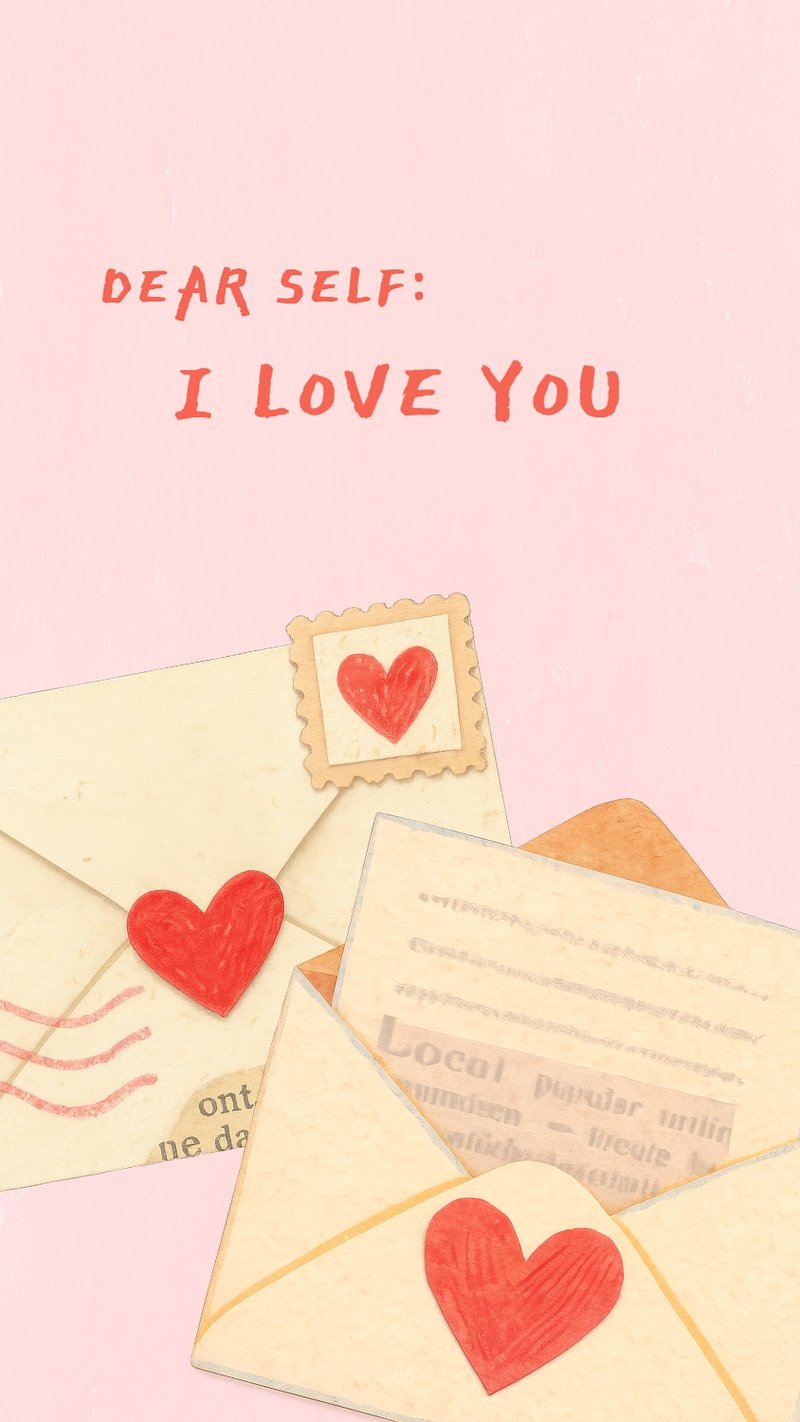 DEAR SELF:
I LOVE YOU
ont
ne da
Local popular